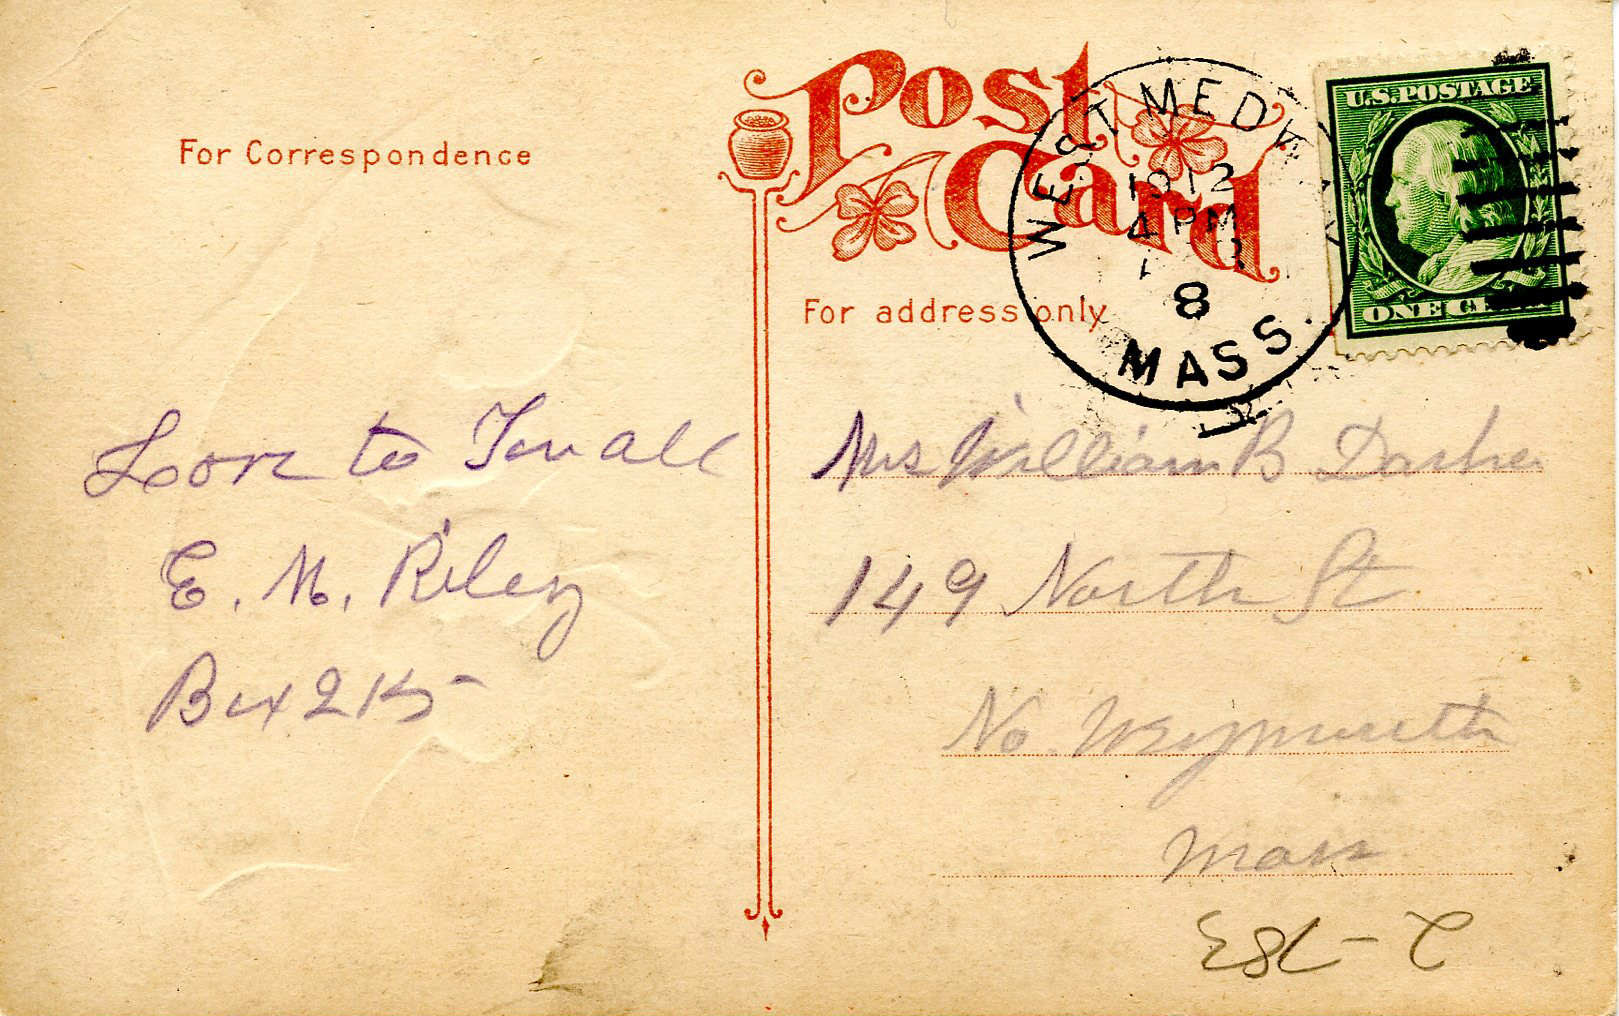 Post
Card
For Correspondence
For address only
WEST MEDWAY
1912
4 PM
8
MASS.
U.S. POSTAGE
ONE CENT
Love to You all
E. M. Riley
Box 215
Mrs William B Dasher
149 North St
No. Weymouth
Mass